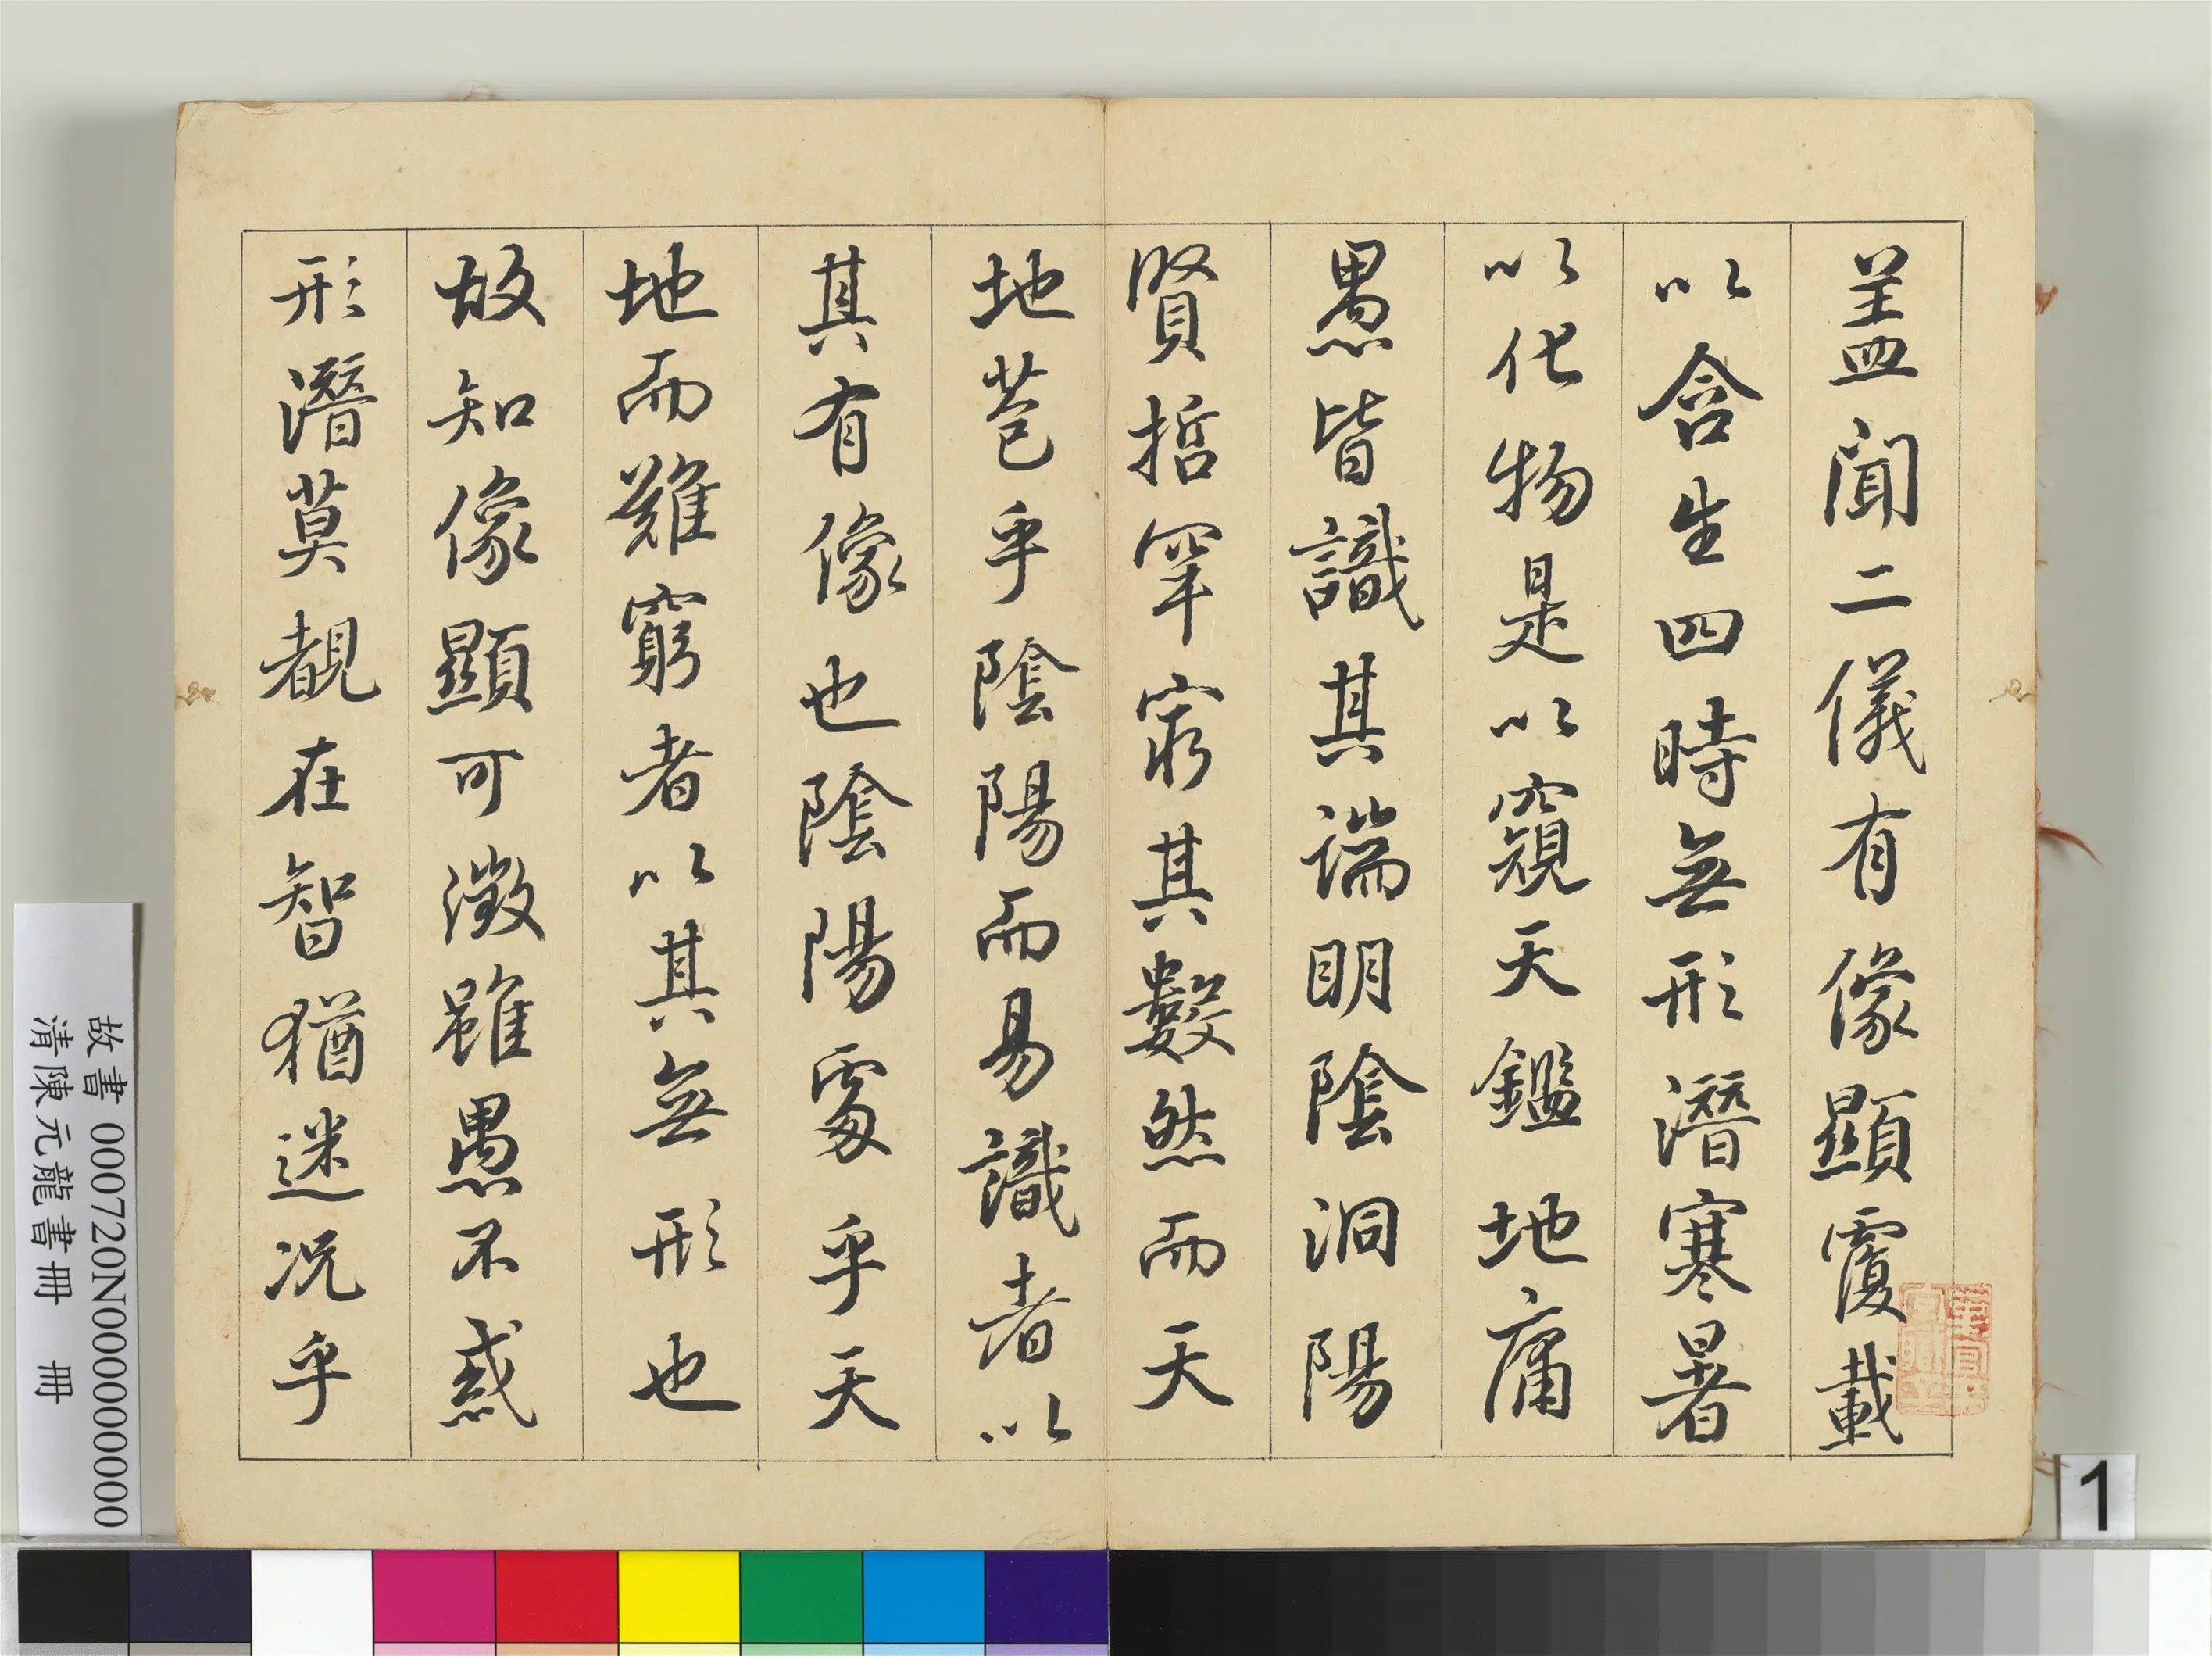 盖聞二儀有像顯覆載
以含生四時無形潛寒暑
以化物是以窺天鑑地庸
愚皆識其端明陰洞陽
賢哲罕窮其數然而天
地苞乎陰陽而易識者以
其有像也陰陽處乎天
地而難窮者以其無形也
故知像顯可徵雖愚不惑
形潛莫覩在智猶迷況乎
故書 000720N000000000
清陳元龍書冊　冊
1